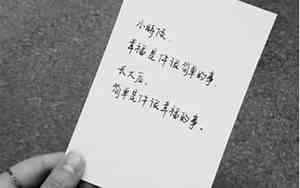 小时候、
幸福是件很简单的事.
长大后、
简单是件很幸福的事.